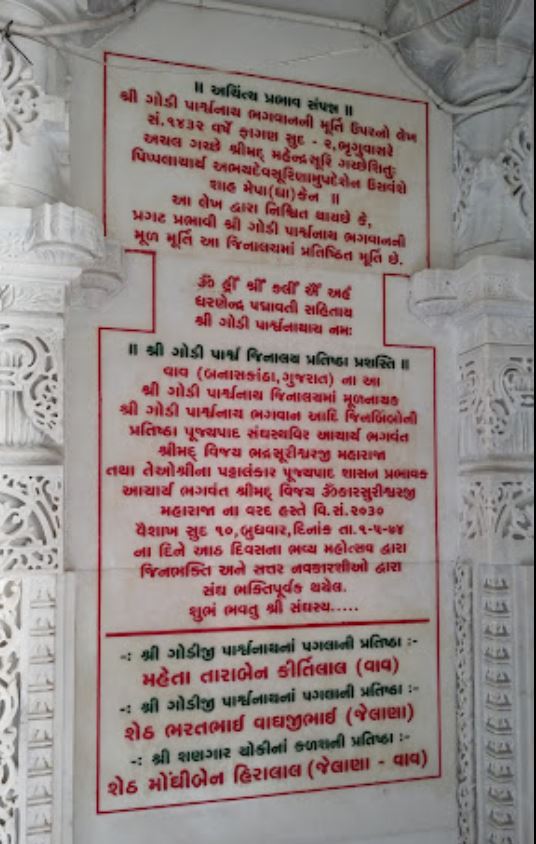 ॥ અચિંત્ય પ્રભાવ સંપન્ન ॥
શ્રી ગોડી પાર્શ્વનાથ ભગવાનની મૂર્તિ ઉપરનો લેખ
સં.૧૪૩૨ વર્ષે ફાગણ સુદ - ૨,ભૃગુવાસરે
અચલ ગચ્છે શ્રીમદ્ મહેન્દ્રસૂરિ ગચ્છેશિતુઃ
પિપ્પલાચાર્ય અભયદેવસૂરિણામુપદેશેન ઉસવંશે
શાહ મેપા(ઘા)કેન ॥
આ લેખ દ્વારા નિશ્ચિત થાયછે કે,
પ્રગટ પ્રભાવી શ્રી ગોડી પાર્શ્વનાથ ભગવાનની
મૂળ મૂર્તિ આ જિનાલયમાં પ્રતિષ્ઠિત મૂર્તિ છે.
ૐ હ્રીઁ શ્રીઁ કલીઁ ઐઁ અર્હં
ધરણેન્દ્ર પદ્માવતી સહિતાય
શ્રી ગોડી પાર્શ્વનાથાય નમઃ
॥ શ્રી ગોડી પાર્શ્વ જિનાલય પ્રતિષ્ઠા પ્રશસ્તિ ॥
વાવ (બનાસકાંઠા,ગુજરાત) ના આ
શ્રી ગોડી પાર્શ્વનાથ જિનાલયમાં મૂળનાયક
શ્રી ગોડી પાર્શ્વનાથ ભગવાન આદિ જિનબિંબોની
પ્રતિષ્ઠા પૂજ્યપાદ સંઘસ્થવિર આચાર્ય ભગવંત
શ્રીમદ્ વિજય ભદ્રસૂરીશ્વરજી મહારાજા
તથા તેઓશ્રીના પટ્ટાલંકાર પૂજ્યપાદ શાસન પ્રભાવક
આચાર્ય ભગવંત શ્રીમદ્ વિજય ૐકારસુરીશ્વરજી
મહારાજા ના વરદ હસ્તે વિ.સં.૨૦૩૦
વૈશાખ સુદ ૧૦,બુધવાર,દિનાંક તા.૧-૫-૭૪
ના દિને આઠ દિવસના ભવ્ય મહોત્સવ દ્વારા
જિનભક્તિ અને સત્તર નવકારશીઓ દ્વારા
સંઘ ભક્તિપૂર્વક થયેલ.
શુભં ભવતુ શ્રી સંઘસ્ય.....
-: શ્રી ગોડીજી પાર્શ્વનાથનાં પગલાની પ્રતિષ્ઠા :-
મહેતા તારાબેન કીર્તિલાલ (વાવ)
-: શ્રી ગોડીજી પાર્શ્વનાથનાં પગલાની પ્રતિષ્ઠા :-
શેઠ ભરતભાઈ વાઘજીભાઈ (જેલાણા)
-: શ્રી શણગાર ચોકીનાં કળશની પ્રતિષ્ઠા :-
શેઠ મોંઘીબેન હિરાલાલ (જેલાણા - વાવ)